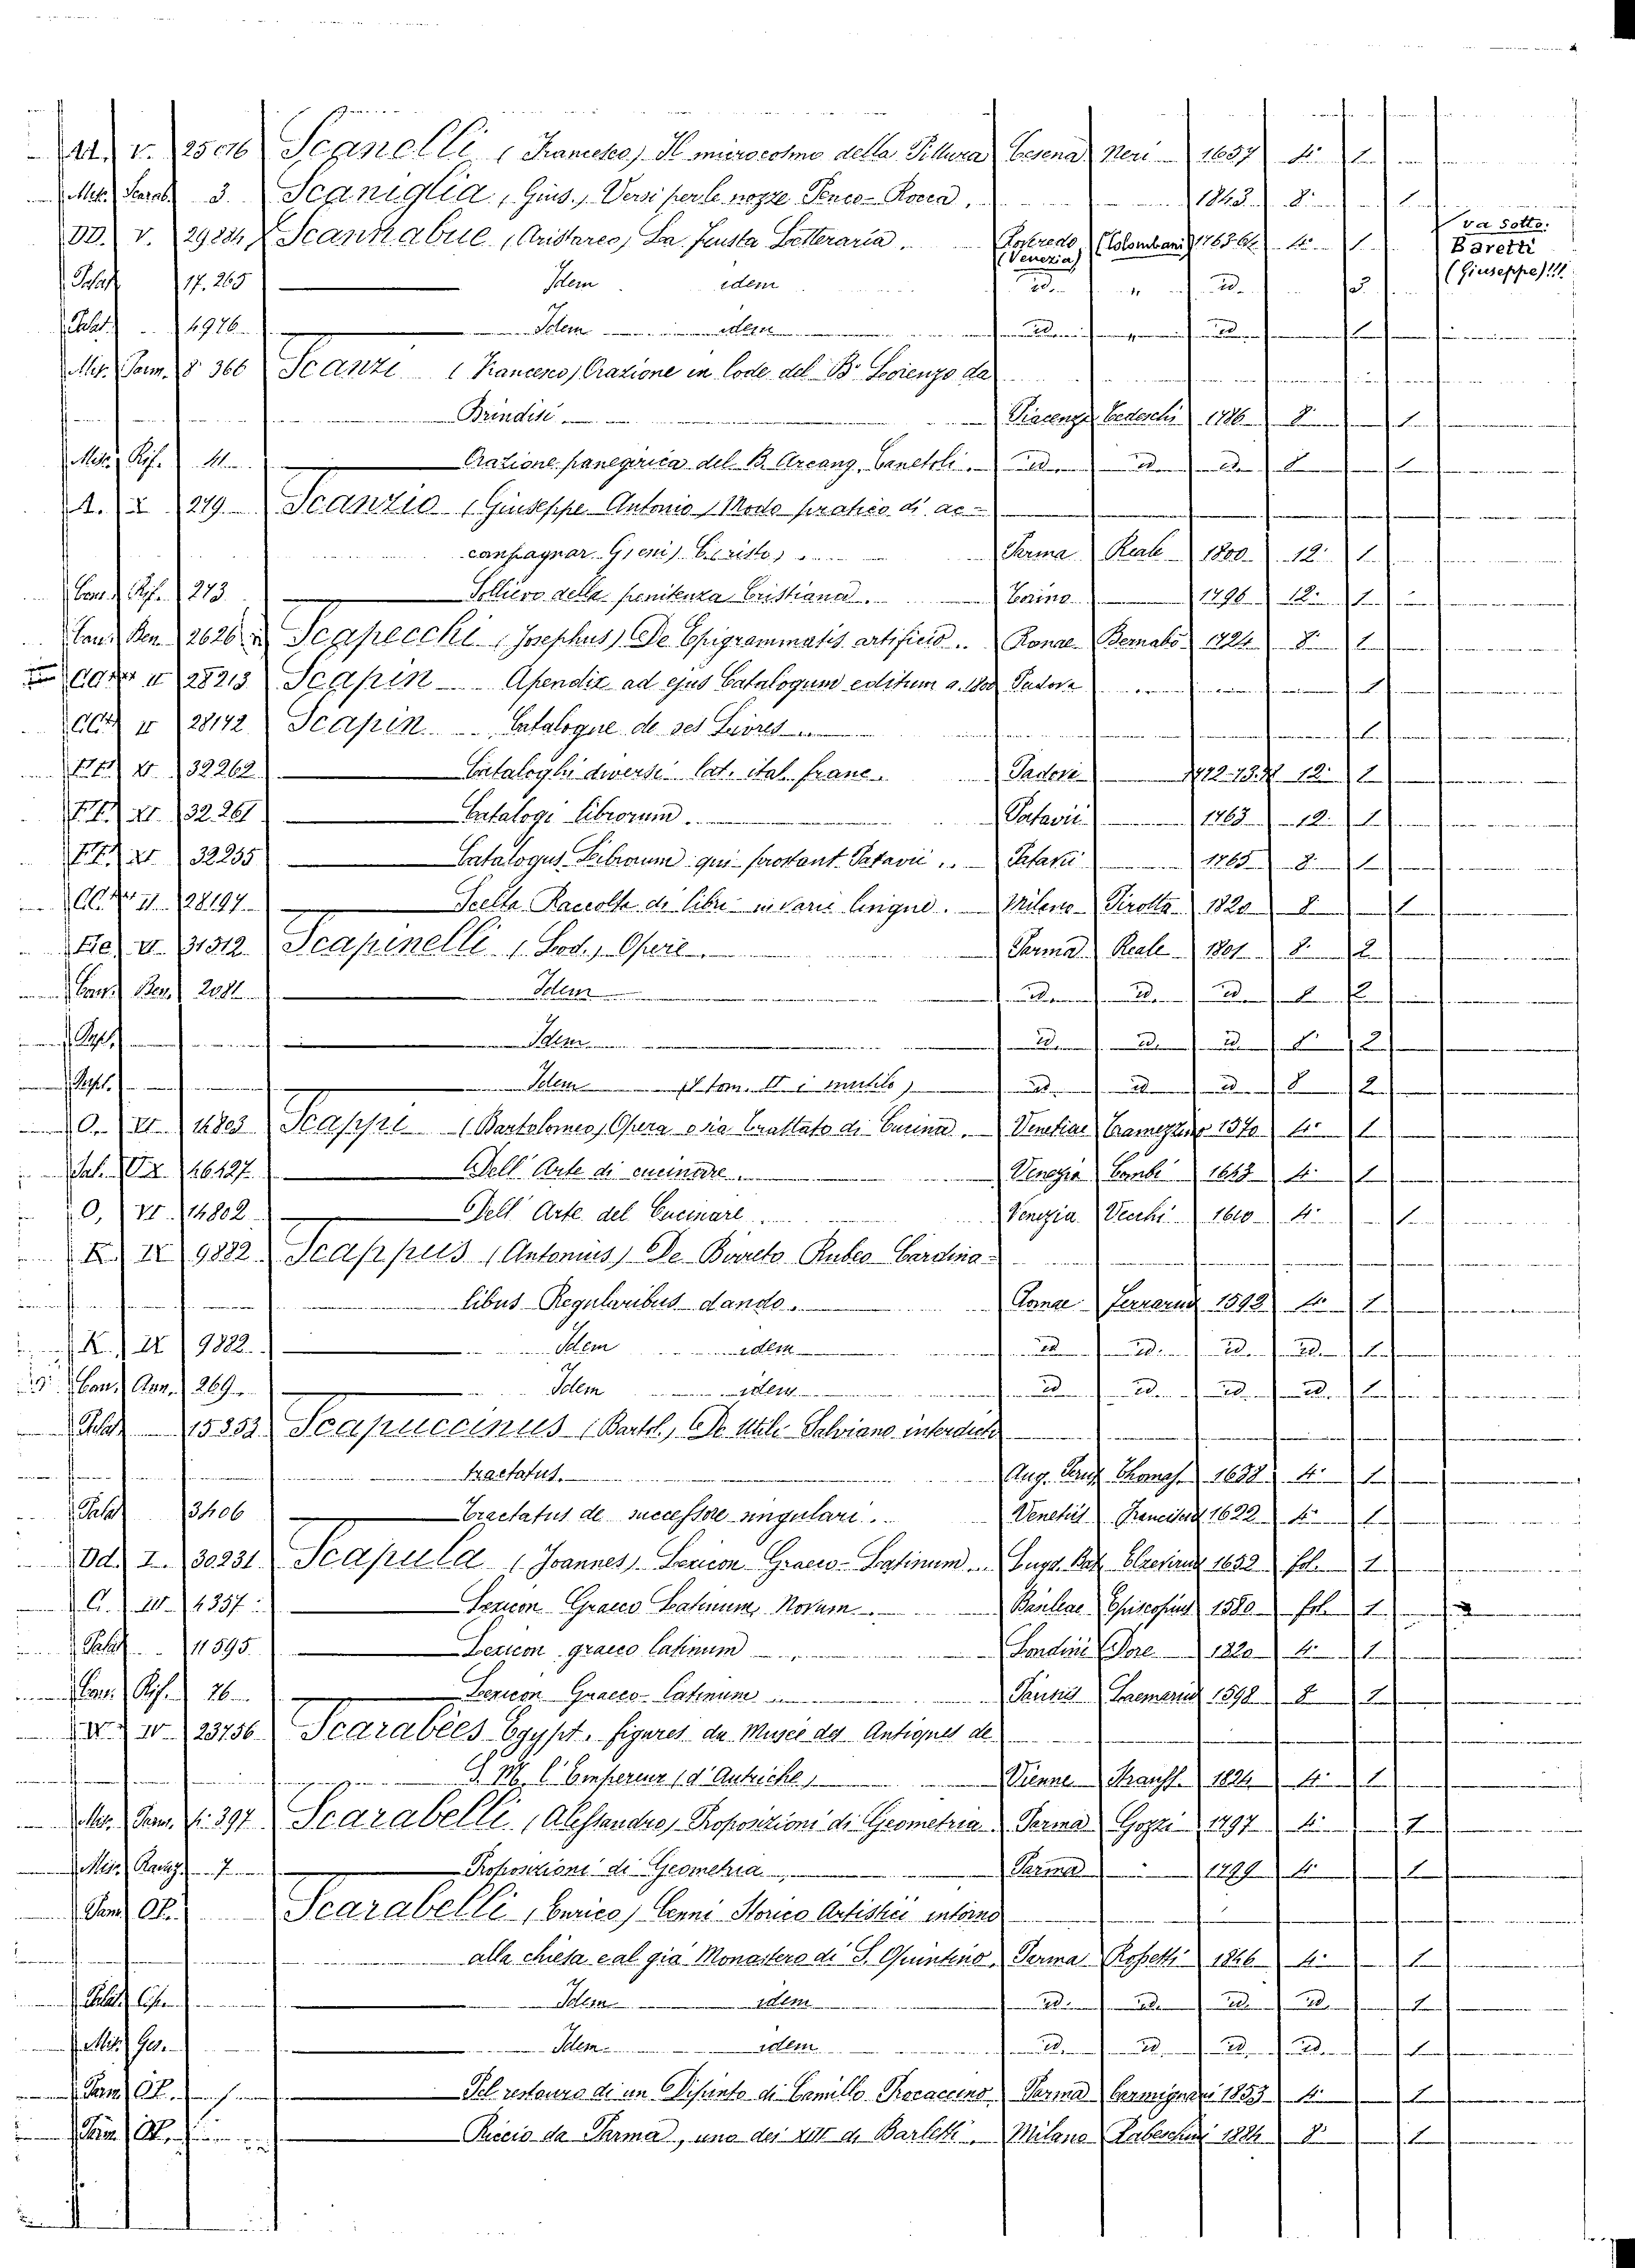 v. 25016 Scanelli (Francesco) Il microcosmo della Pittura Cesena Neri 1657 4° 1
Misc. Scarab. 3. Scaniglia, Gius., Versi per le nozze Penco-Rocca. 1843 8° 1
DD. V. 29884 Scannabue (Aristarco) La Frusta Letteraria. Roveredo (Venezia) (Colombani) 1763-64 4° 1 Va sotto. Baretti (Giuseppe)!!!
Palat. 17.265 Idem idem id. " id. 3
Palat. 4976 Idem idem id. " id. 1
Mis. Parm. 8° 366 Scanzi (Francesco) Orazione in lode del B. Lorenzo da
Brindisi Piacenza Tedeschi 1786 8° 1
Misc. Rif. 41 Orazione panegirica del B. Arcang. Canetoli. id. id. id. 8 1
A. X 279 Scanzio (Giuseppe Antonio) Modo pratico di ac-
canpagnar G(eni) C(risto) Parma Reale 1800 12° 1
Conv. Rif. 273 Sollievo della penitenza Cristiana. Torino 1796 12. 1
Conv. Ben. 2626 Scapecchi (Josephus) De Epigrammatis artificio. Romae Bernabò 1724 8° 1
28213 Scapin Apendix ad ejus Catalogum editum a. 1800 Padova 1
28142 Scapin Catalogue de ses Livres 1
32262 Cataloghi diversi lat. ital. franc. Padova 12° 1
32.261 Catalogi librorum. Patavii 1763 12. 1
32255 Catalogus Librorum qui prostant Patavii. Patavii 1765 8° 1
28197 Scelta Raccolta di libri in varie lingue. Milano Pirotta 1820 8 1
31312 Scapinelli (Lod.) Opere. Parma Reale 1801 8. 2
Conv. Ben. 2081 Idem id. id. id. 8 2
Idem id. id. id. 8° 2
Idem (il tom. II è mutilo) id. id. id. 8 2
O. VI 14803 Scappi (Bartolomeo) Opera o sia Trattato di Cucina. Venetiae Tramezzino 1570 4° 1
Pal. 16427 Dell' Arte di cucinare. Venezia Combi 1643 4° 1
O. VI 14802 Dell' Arte del Cucinare Venezia Vecchi 1610 4° 1
K. IX 9882 Scappus (Antonius) De Birreto Rubeo Cardina-
libus Regularibus dando. Romae Ferrarius 1592 4° 1
K. IX 9882. Idem idem id. id. id. id. 1
Conv. Ann. 269. Idem idem id. id. id. id. 1
Palat. 15353 Scapuccinus (Bartol.) De Utili Salviano interdicto
tractatus. Aug. Perus. Thomas. 1638 4° 1
Palat. 3406 Tractatus de successore singulari. Venetiis Franciscus 1622 4° 1
Dd. I. 30231 Scapula (Joannes) Lexicon Graeco-Latinum. Lugd. Bat. Elzevirius 1652 fol. 1
C. III. 4357 Lexicon Graeco Latinum, Novum. Basileae Episcopius 1580 fol. 1
Palat. 11595 Lexicon graeco latinum Londini Dore 1820 4° 1
Conv. Rif. 76 Lexicon Graeco-Latinum Parisiis 1598 8 1
IV 23756 Scarabées Egypt. figurés du Musée des Antiques de
S. M. l'Empereur (d'Autriche) Vienne Strauss. 1824 4° 1
Mis. Parm. fi. 397 Scarabelli (Alessandro) Proposizioni di Geometria Parma Gozzi 1797 4° 1
Misc. 7 Proposizioni di Geometria Parma 1799 4° 1
Parm. Op. Scarabelli (Enrico) Cenni Storico Artistici intorno
alla chiesa e al già Monastero di S. Quintino. Parma Rossetti 1866 4° 1
Palat. Idem idem id. id. id. id. 1
Misc. Idem idem id. id. id. id. 1
Parm. Op. Del restauro di un Dipinto di Camillo Procaccino Parma Carmignani 1853 4° 1
Parm. Op. Riccio da Parma, uno dei XIII di Barletta. Milano 1884 8° 1